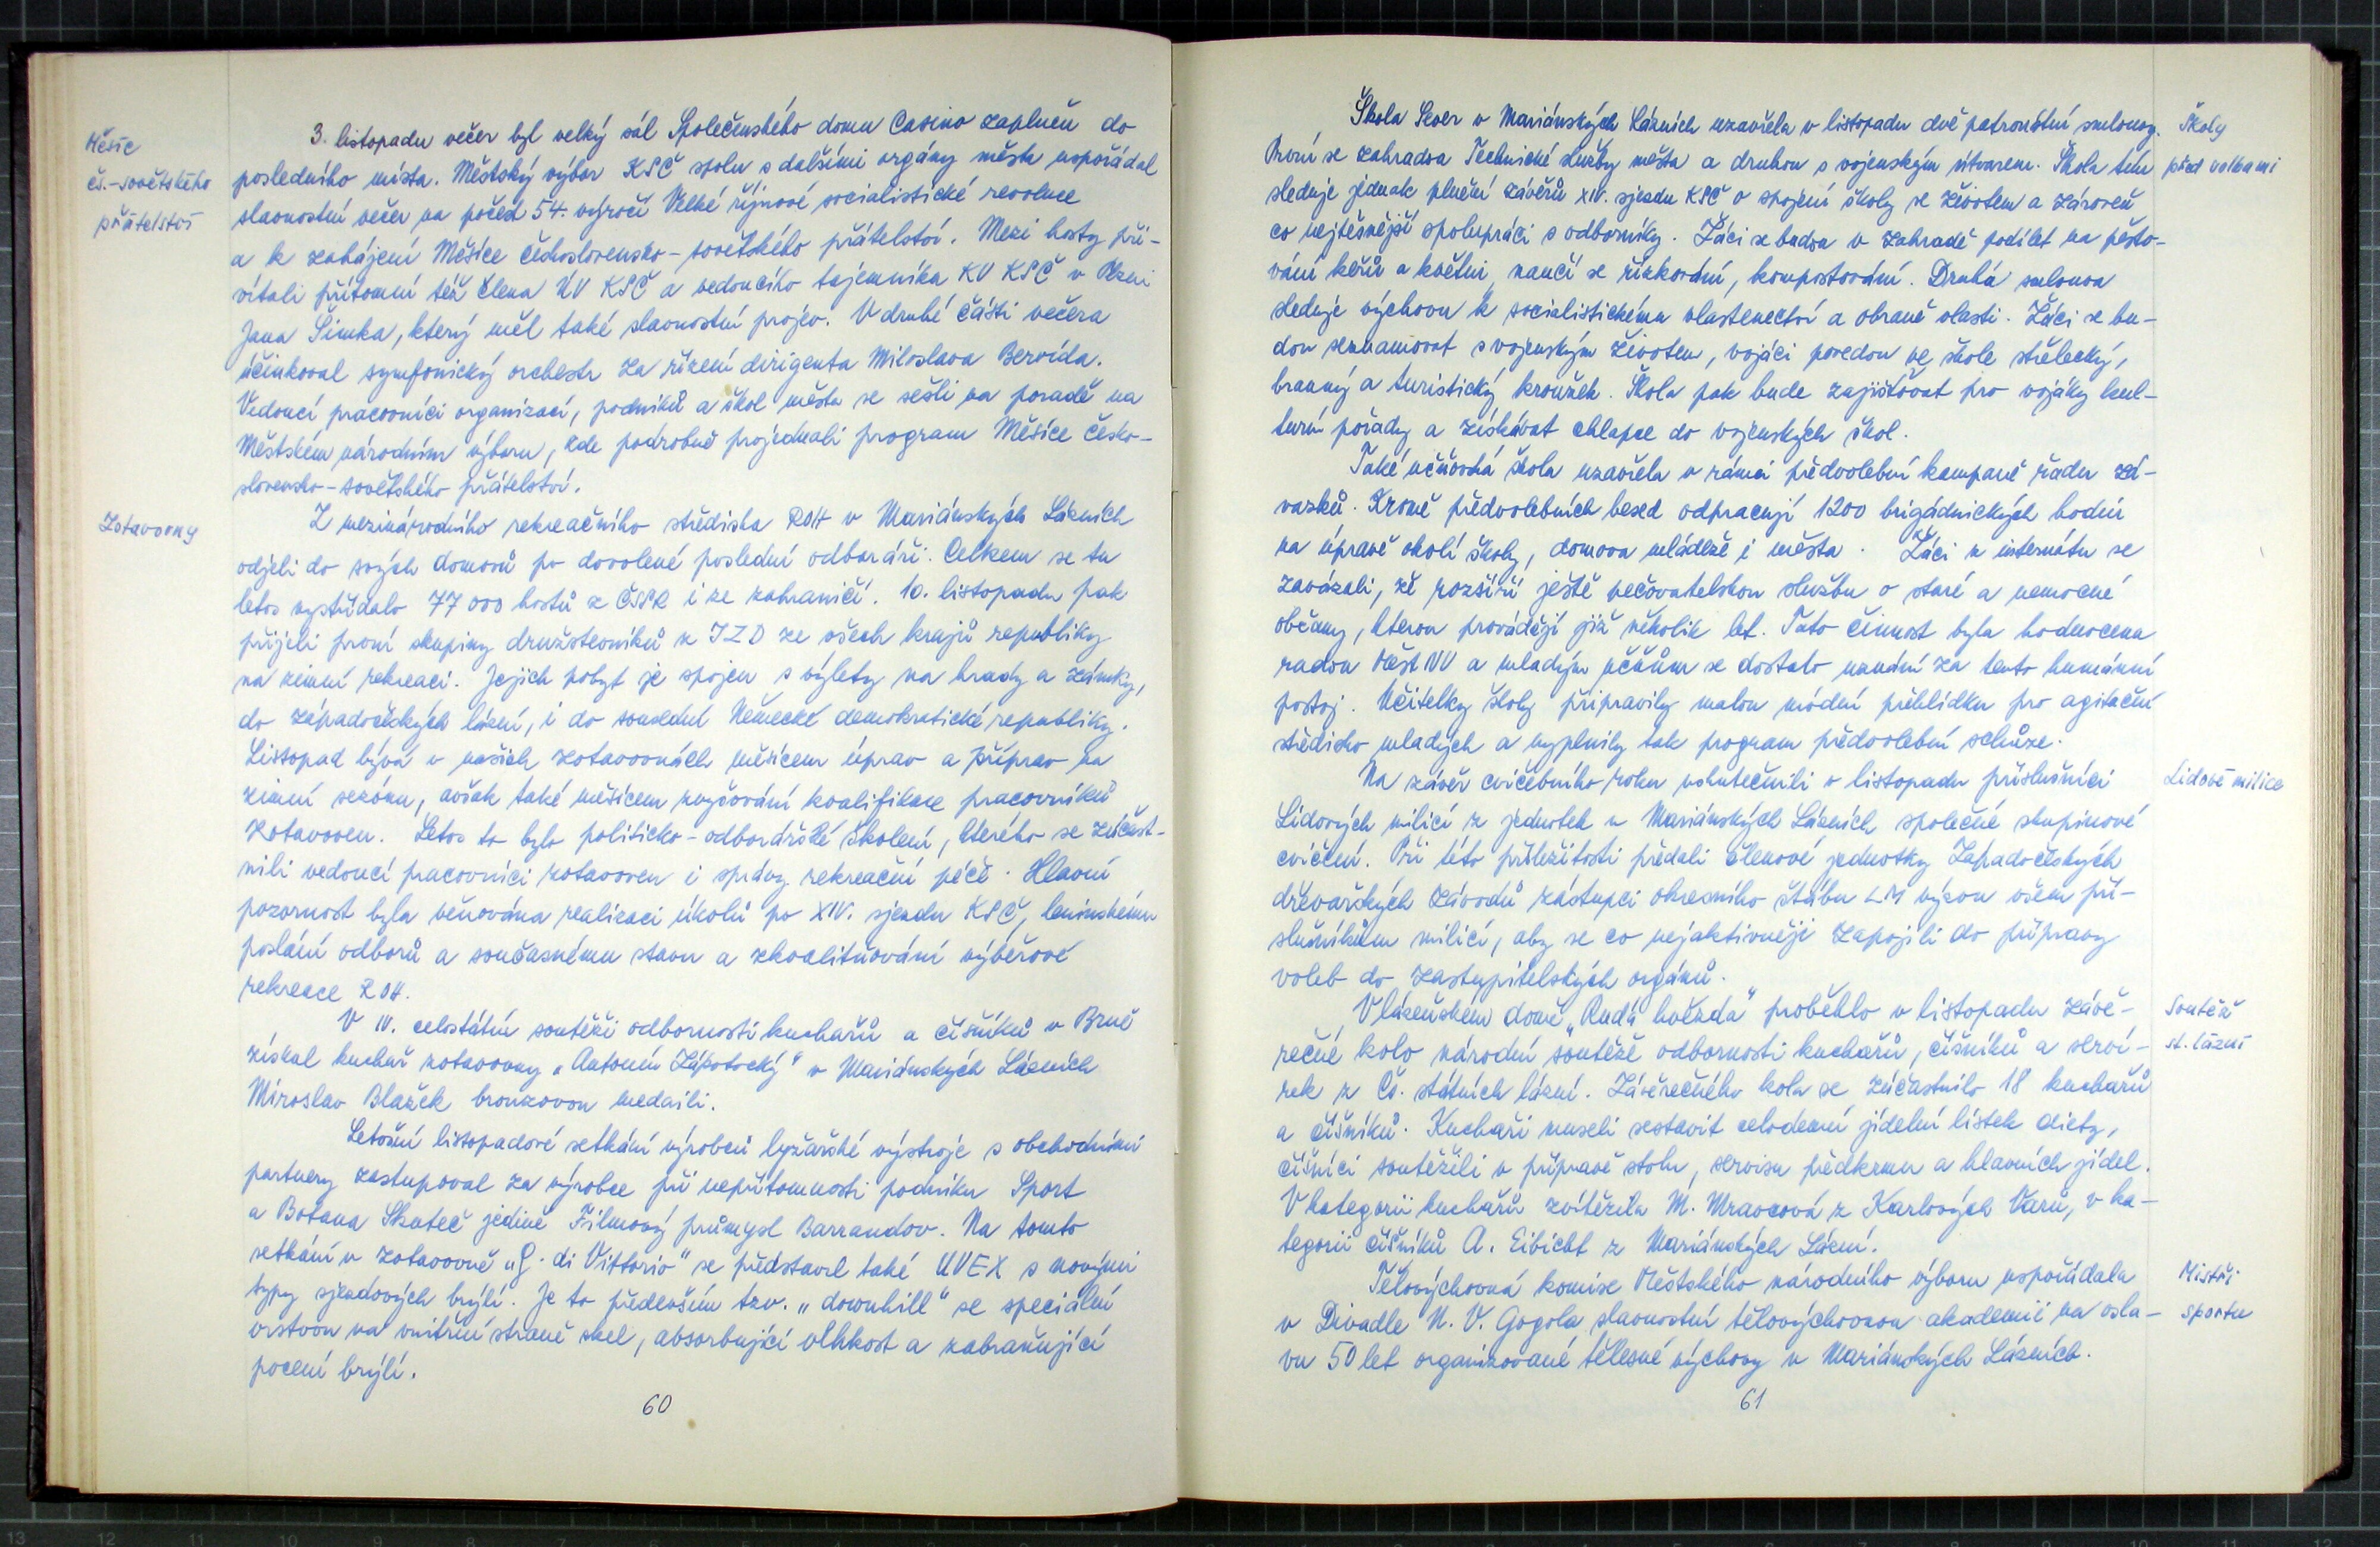 Měsíc
čs.-sovětského
přátelství
3. listopadu večer byl velký sál Společenského domu Casino zaplněn do
posledního místa. Městský výbor KSČ spolu s dalšími orgány města uspořádal
slavnostní večer na počest 54. výročí Velké říjnové socialistické revoluce
a k zahájení Měsíce československo-sovětského přátelství. Mezi hosty při-
vítali přítomní též člena ÚV KSČ a vedoucího tajemníka KV KSČ v Plzni
Jana Šimka, který měl také slavnostní projev. V druhé části večera
účinkoval symfonický orchestr za řízení dirigenta Miloslava Bervída.
Vedoucí pracovníci organizací, podniků a škol města se sešli na poradě na
Městském národním výboru, kde podrobně projednali program Měsíce česko-
slovensko-sovětského přátelství.
Zotavovny
Z mezinárodního rekreačního střediska ROH v Mariánských Lázních
odjeli do svých domovů po dovolené poslední odboráři. Celkem se tu
letos vystřídalo 77 000 hostů z ČSSR i ze zahraničí. 10. listopadu pak
přijeli první skupiny družstevníků z JZD ze všech krajů republiky
na zimní rekreaci. Jejich pobyt je spojen s výlety na hrady a zámky,
do západočeských lázní, i do sousední Německé demokratické republiky.
Listopad bývá v našich zotavovnách měsícem úprav a příprav na
zimní sezónu, avšak také měsícem zvyšování kvalifikace pracovníků
zotavoven. Letos to bylo politicko-odborářské školení, kterého se zúčast-
nili vedoucí pracovníci zotavoven i správy rekreační péče. Hlavní
pozornost byla věnována realizaci úkolů po XIV. sjezdu KSČ, leninskému
poslání odborů a současnému stavu a zkvalitňování výběrové
rekreace ROH.
V IV. celostátní soutěži odbornosti kuchařů a číšníků v Brně
získal kuchař zotavovny „Antonín Zápotocký" v Mariánských Lázních
Miroslav Blažek bronzovou medaili.
Letošní listopadové setkání výrobců lyžařské výstroje s obchodními
partnery zastupoval za výrobce při nepřítomnosti podniku Sport
a Botana Skuteč jedině Filmový průmysl Barrandov. Na tomto
setkání v zotavovně „G. di Vittorio" se představil také UVEX s novými
typy sjezdových brýlí. Je to především tzv. „downhill" se speciální
vrstvou na vnitřní straně skel, absorbující vlhkost a zabraňující
pocení brýlí.
60
Škola Sever v Mariánských Lázních uzavřela v listopadu dvě patronátní smlouvy.
Školy
před volbami
První se zahradou Technické služby města a druhou s vojenským útvarem. Škola tím
sleduje jednak plnění závěrů XIV. sjezdu KSČ o spojení školy se životem a zároveň
co nejtěsnější spolupráci s odborníky. Žáci se budou v zahradě podílet na pěsto-
vání keřů a květin, naučí se řízkování, kompostování. Druhá smlouva
sleduje výchovu k socialistickému vlastenectví a obraně vlasti. Žáci se bu-
dou seznamovat s vojenským životem, vojáci povedou ve škole střelecký,
branný a turistický kroužek. Škola pak bude zajišťovat pro vojáky kul-
turní pořady a získávat chlapce do vojenských škol.
Také učňovská škola uzavřela v rámci předvolební kampaně řadu zá-
vazků. Kromě předvolebních besed odpracují 1200 brigádnických hodin
na úpravě okolí školy, domova mládeže i města. Žáci z internátu se
zavázali, že rozšíří ještě pečovatelskou službu o staré a nemocné
občany, kterou provádějí již několik let. Tato činnost byla hodnocena
radou MěstNV a mladým učňům se dostalo uznání za tento humánní
postoj. Učitelky školy připravily malou módní přehlídku pro agitační
středisko mladých a vyplnily tak program předvolební schůze.
Na závěr cvičebního roku uskutečnili v listopadu příslušníci
Lidové milice
Lidových milicí z jednotek v Mariánských Lázních společné skupinové
cvičení. Při této příležitosti předali členové jednotky Západočeských
dřevařských závodů zástupci okresního štábu LM výzvu všem pří-
slušníkům milicí, aby se co nejaktivněji zapojili do přípravy
voleb do zastupitelských orgánů.
V lázeňském domě „Rudá hvězda" proběhlo v listopadu závě-
Soutěž
st. lázní
rečné kolo národní soutěže odbornosti kuchařů, číšníků a serví-
rek z Čs. státních lázní. Závěrečného kola se zúčastnilo 18 kuchařů
a číšníků. Kuchaři museli sestavit celodenní jídelní lístek diety,
číšníci soutěžili v přípravě stolu, servisu předkrmu a hlavních jídel.
V kategorii kuchařů zvítězila M. Mravcová z Karlových Varů, v ka-
tegorii číšníků A. Eibicht z Mariánských Lázní.
Tělovýchovná komise Městského národního výboru uspořádala
Mistři
sportu
v Divadle N. V. Gogola slavnostní tělovýchovnou akademii na osla-
vu 50 let organizované tělesné výchovy v Mariánských Lázních.
61